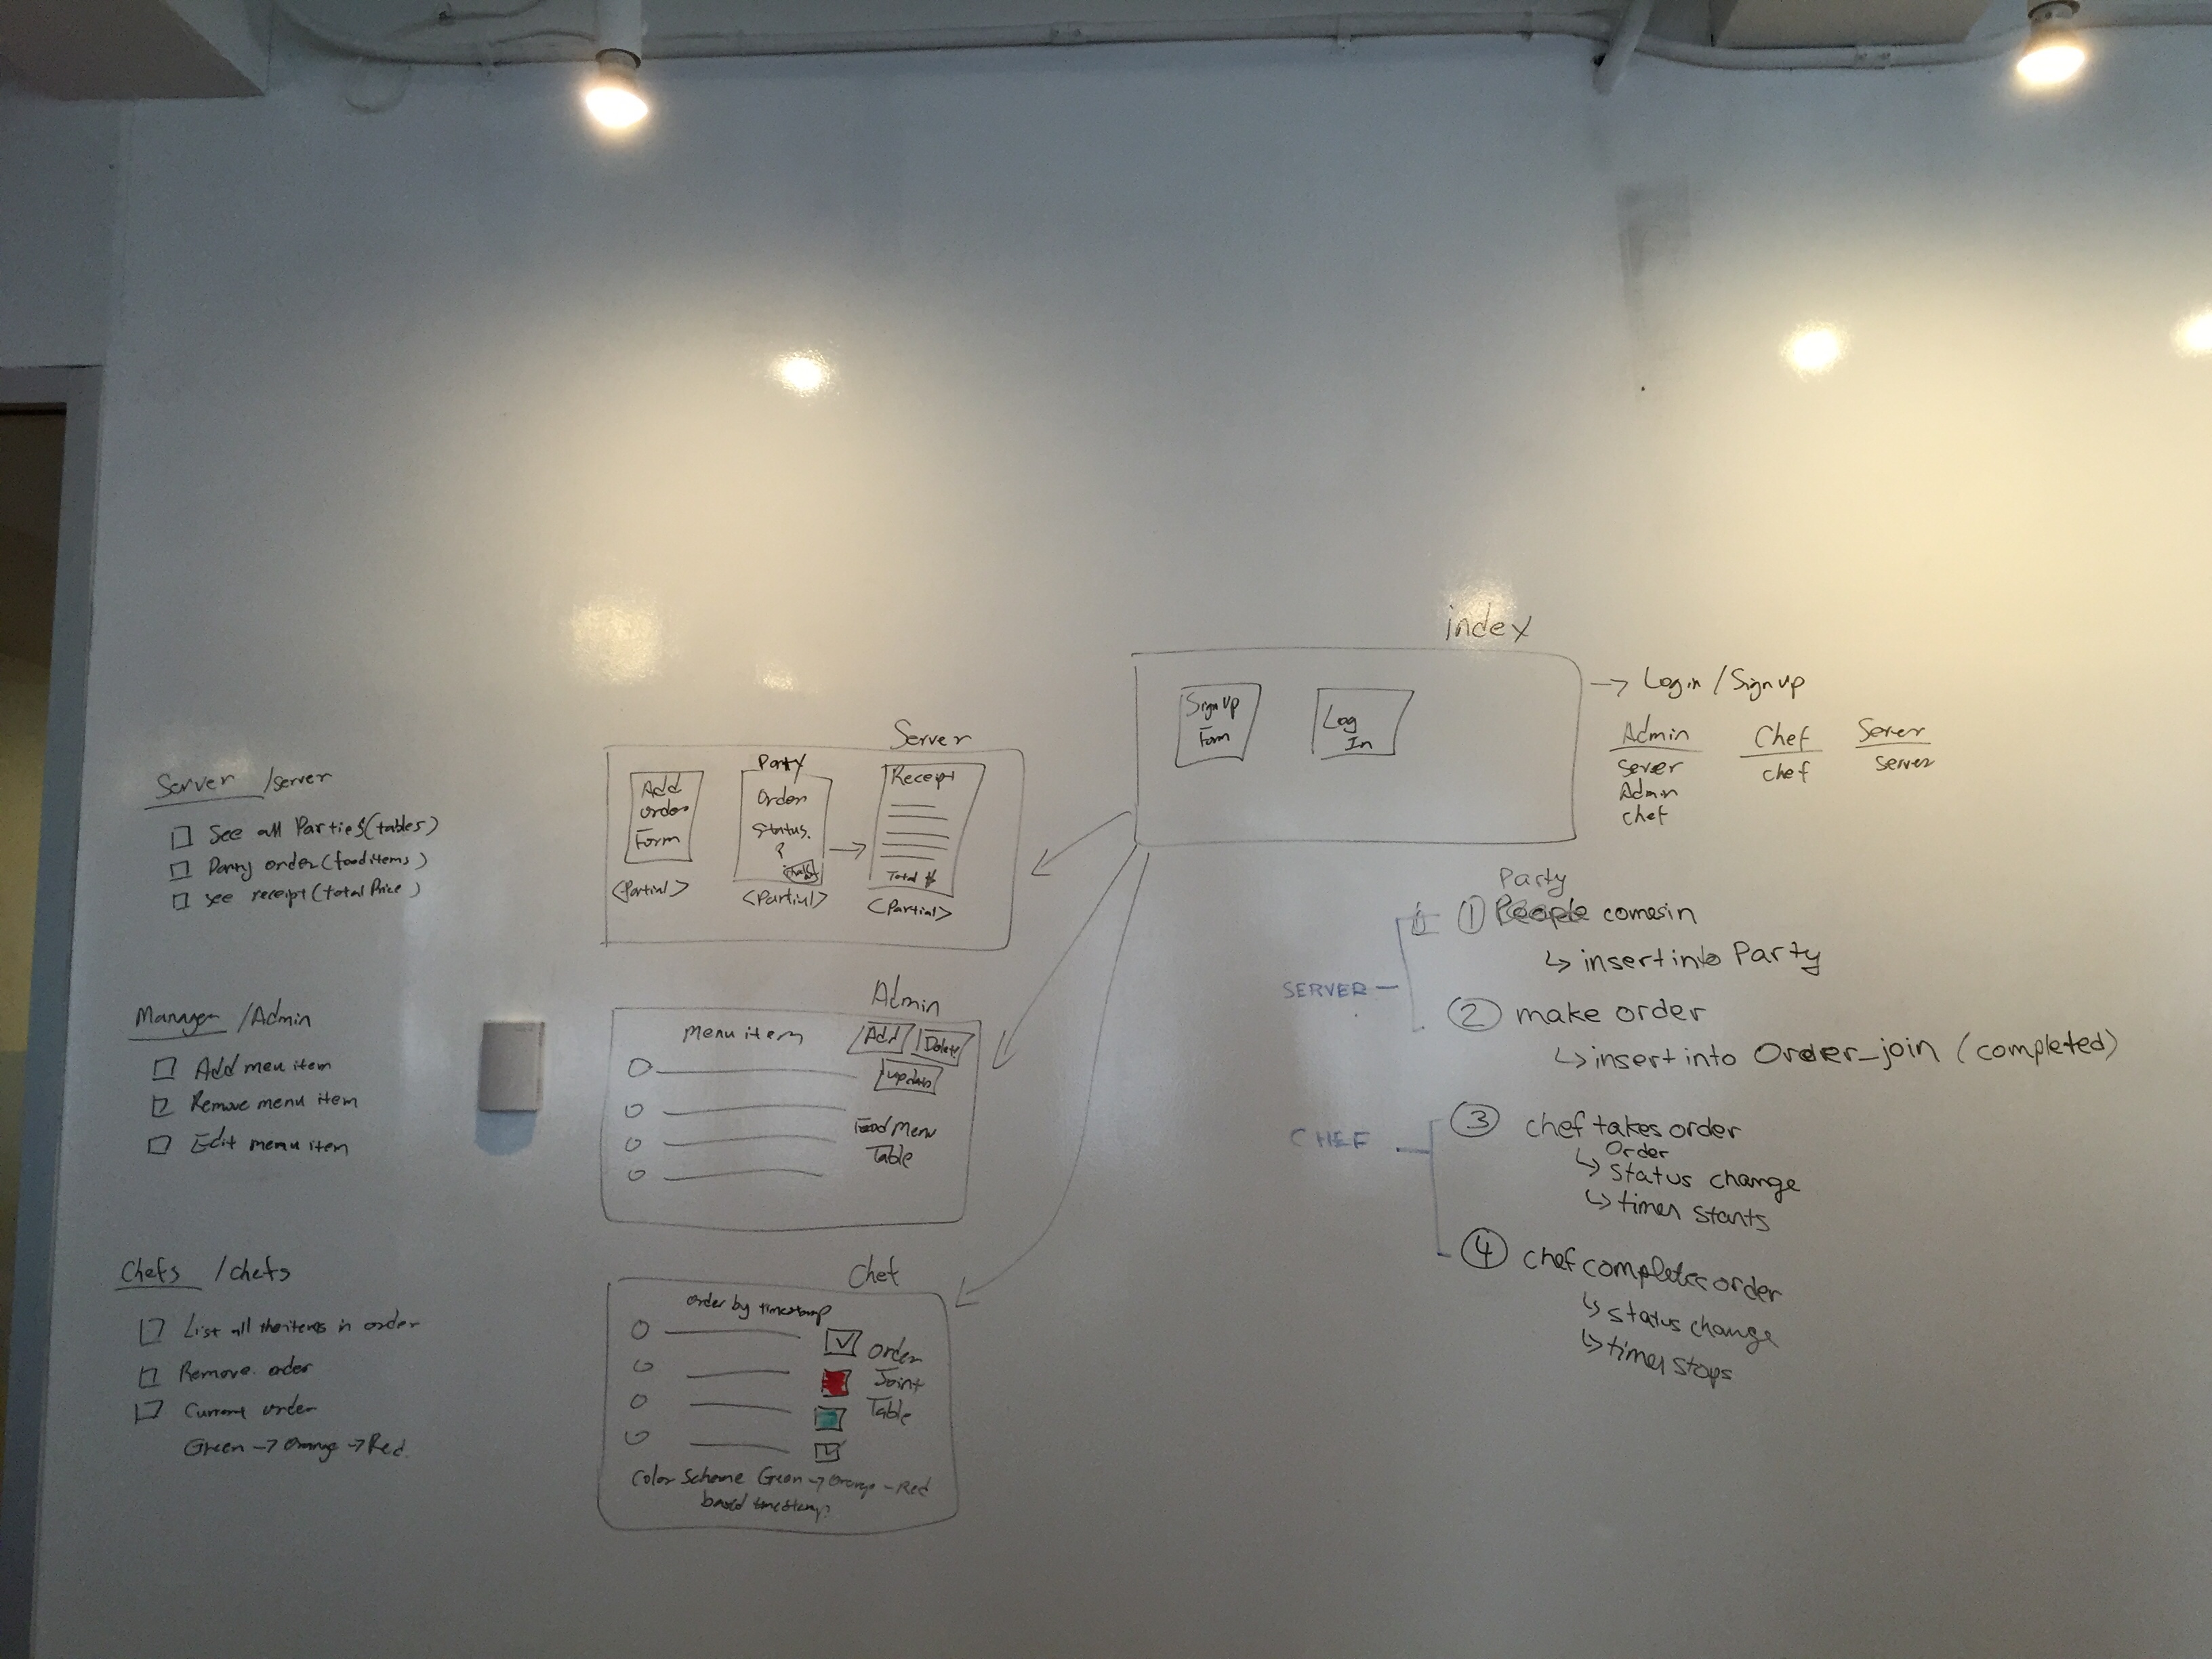 Server /server
See all Parties(tables)
Party order(food items)
See receipt(total Price)
Manager /Admin
Add menu item
Remove menu item
Edit menu item
Chefs /chefs
List all the items in order
Remove order
Current order
Green → Orange → Red
Server
Add
order
Form
<Partial>
Party
Order
Status.
?
<Partial>
Receipt
Total $
<Partial>
Admin
menu item
Add
Delete
update
Food Menu
Table
Chef
order by timestamp
Order
Joint
Table
Color Scheme Green → Orange - Red
based timestamp
index
Sign Up
Form
Log
In
→ Login / Sign up
Admin
server
Admin
chef
Chef
chef
Server
server
SERVER
Party
1 People comes in
↳ insert into Party
2 make order
↳ insert into Order_join (completed)
CHEF
3 chef takes order
Order
↳ status change
↳ timer starts
4 chef completes order
↳ status change
↳ timer stops